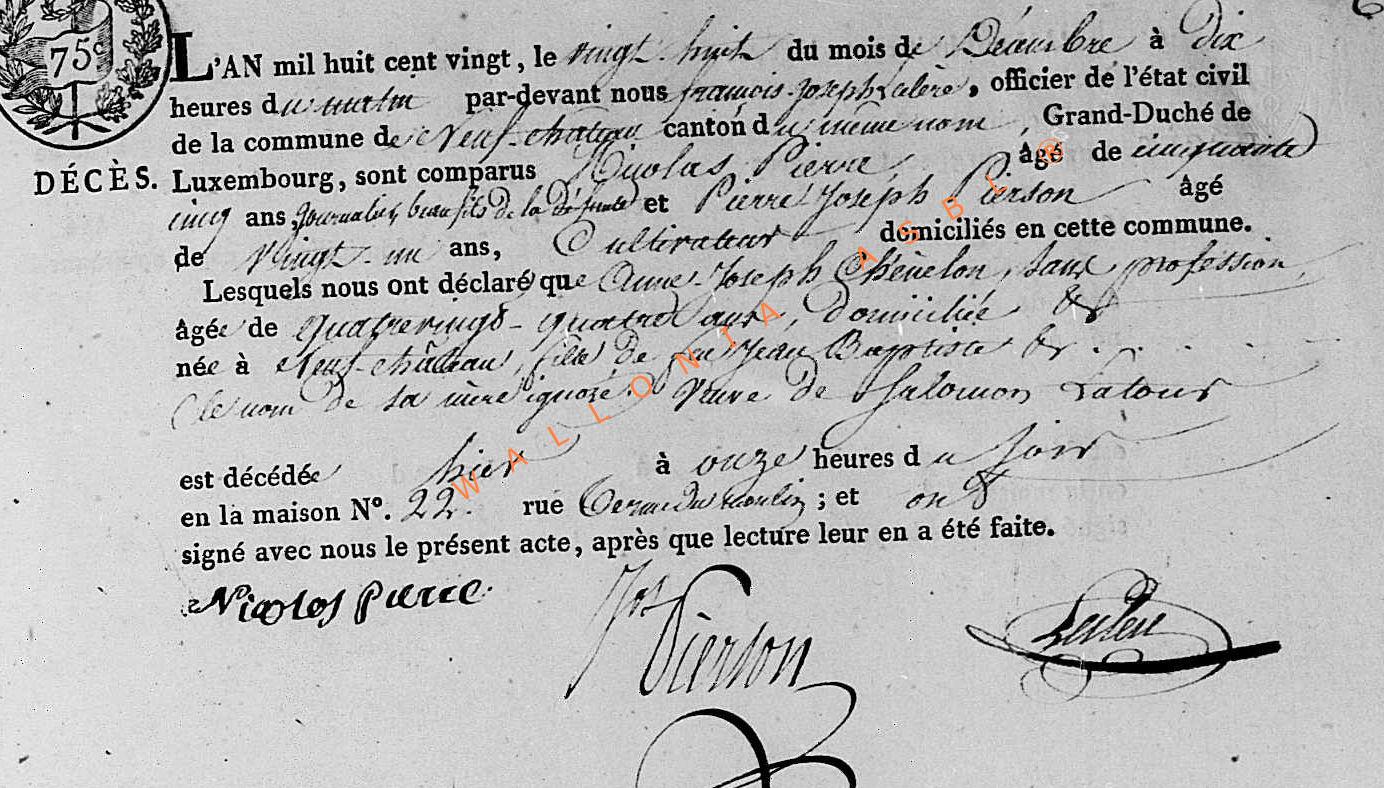 75c
L'AN mil huit cent vingt, le vingt-huit du mois de Décembre à dix
heures du matin par-devant nous françois-Joseph, officier de l'état civil
de la commune de Neuf-château canton du même nom, Grand-Duché de
DÉCÈS. Luxembourg, sont comparus Nicolas Pierre, âgé de cinquante
cinq ans, Journalier, beau fils de la défunte et Pierre Joseph Pierson âgé
de Vingt-un ans, Cultivateur domiciliés en cette commune.
Lesquels nous ont déclaré que Anne-Joseph, sans profession,
âgée de Quatrevingt-quatre ans, domiciliée &
née à Neuf-château, fille de feu Jean Baptiste &
(le nom de sa mère ignoré) Veuve de Salomon Latour
est décédée hier à onze heures du soir
en la maison N°. 22. rue du moulin; et ont
signé avec nous le présent acte, après que lecture leur en a été faite.
Nicolas pierre
Jos Pierson
WALLONIA ASBL